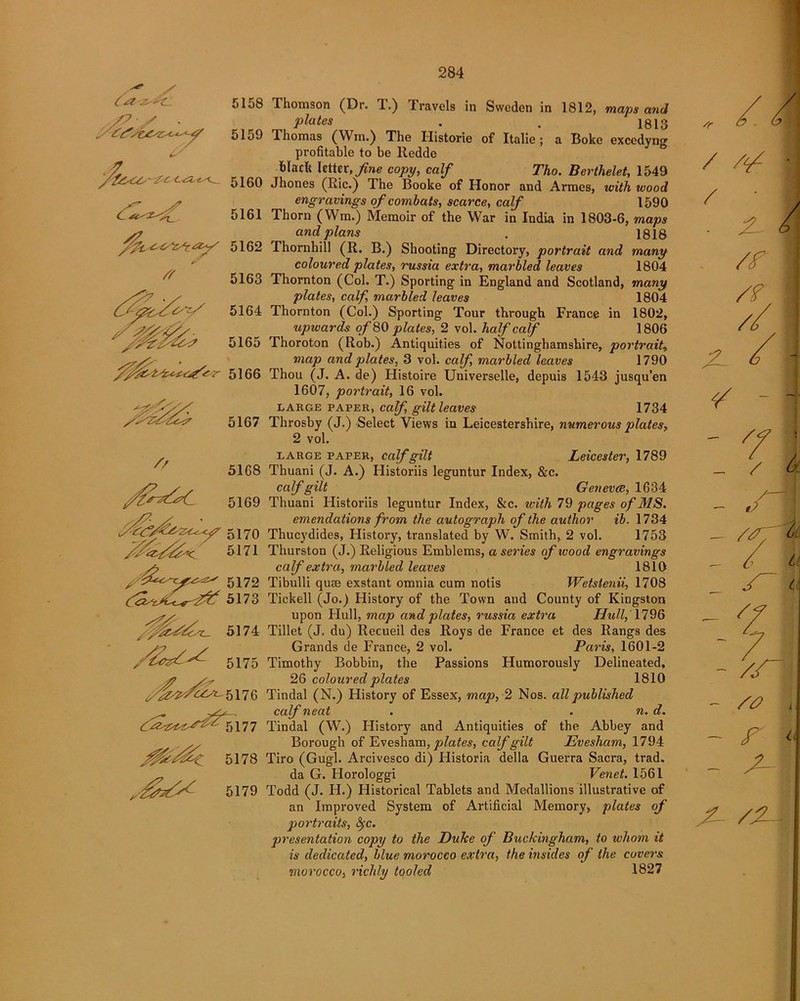 284
5158 Thomson (Dr. T.) Travels in Sweden in 1812, maps and
plates . . 1813
5159 Thomas (Wm.) The Historie of Italie; a Boke excedyng
profitable to be Redde
black letter, fine copy, calf Tho. Berthelet, 1549
5160 Jhones (Ric.) The Booke of Honor and Armes, with wood
engravings of combats, scarce, calf 1590
5161 Thorn (Wm.) Memoir of the War in India in 1803-6, maps
and plans . 1818
5162 Thornhill (R. B.) Shooting Directory, portrait and many
coloured plates, russia extra, marbled leaves 1804
5163 Thornton (Col. T.) Sporting in England and Scotland, many
plates, calf, marbled leaves 1804
5164 Thornton (Col.) Sporting Tour through France in 1802,
upwards of 80 plates, 2 vol. half calf 1806
5165 Thoroton (Rob.) Antiquities of Nottinghamshire, portrait,
map and plates, 3 vol. calf, marbled leaves 1790
5166 Thou (J. A. de) Histoire Universelle, depuis 1543 jusqu'en
1607, portrait, 16 vol.
LARGE PAPER, calf, gilt leaves 1734
5167 Throsby (J.) Select Views in Leicestershire, numerous plates,
2 vol.
LARGE PAPER, calf gilt Leicester, 1789
5168 Thuani (J. A.) Historiis leguntur Index, &c.
calf gilt Genevæ, 1634
5169 Thuani Historiis leguntur Index, &c. with 79 pages of MS.
emendations from the autograph of the author ib. 1734
5170 Thucydides, History, translated by W. Smith, 2 vol. 1753
5171 Thurston (J.) Religious Emblems, a series of wood engravings
calf extra, marbled leaves 1810
5172 Tibulli quæ exstant omnia cum notis Wetstenii, 1708
5173 Tickell (Jo.) History of the Town and County of Kingston
upon Hull, map and plates, russia extra Hull, 1796
5174 Tillet (J. du) Recueil des Roys de France et des Rangs des
Grands de France, 2 vol. Paris, 1601-2
5175 Timothy Bobbin, the Passions Humorously Delineated,
26 coloured plates 1810
5176 Tindal (N.) History of Essex, map, 2 Nos. all published
calf neat . . n. d.
5177 Tindal (W.) History and Antiquities of the Abbey and
Borough of Evesham, plates, calf gilt Evesham, 1794
5178 Tiro (Gugl. Arcivesco di) Historia della Guerra Sacra, trad.
da G. Horologgi Venet. 1561
5179 Todd (J. H.) Historical Tablets and Medallions illustrative of
an Improved System of Artificial Memory, plates of
portraits, &c.
presentation copy to the Duke of Buckingham, to whom it
is dedicated, blue morocco extra, the insides of the covers
morocco, richly tooled 1827